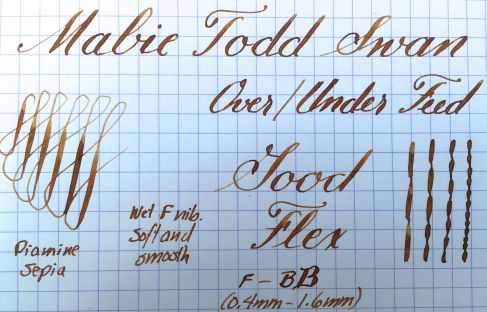 Mabie Todd Swan
Over/Under Feed
Good
Flex
Wet F nib.
Soft and
smooth
Diamine
Sepia
F - BB
(0.4mm - 1.6mm)